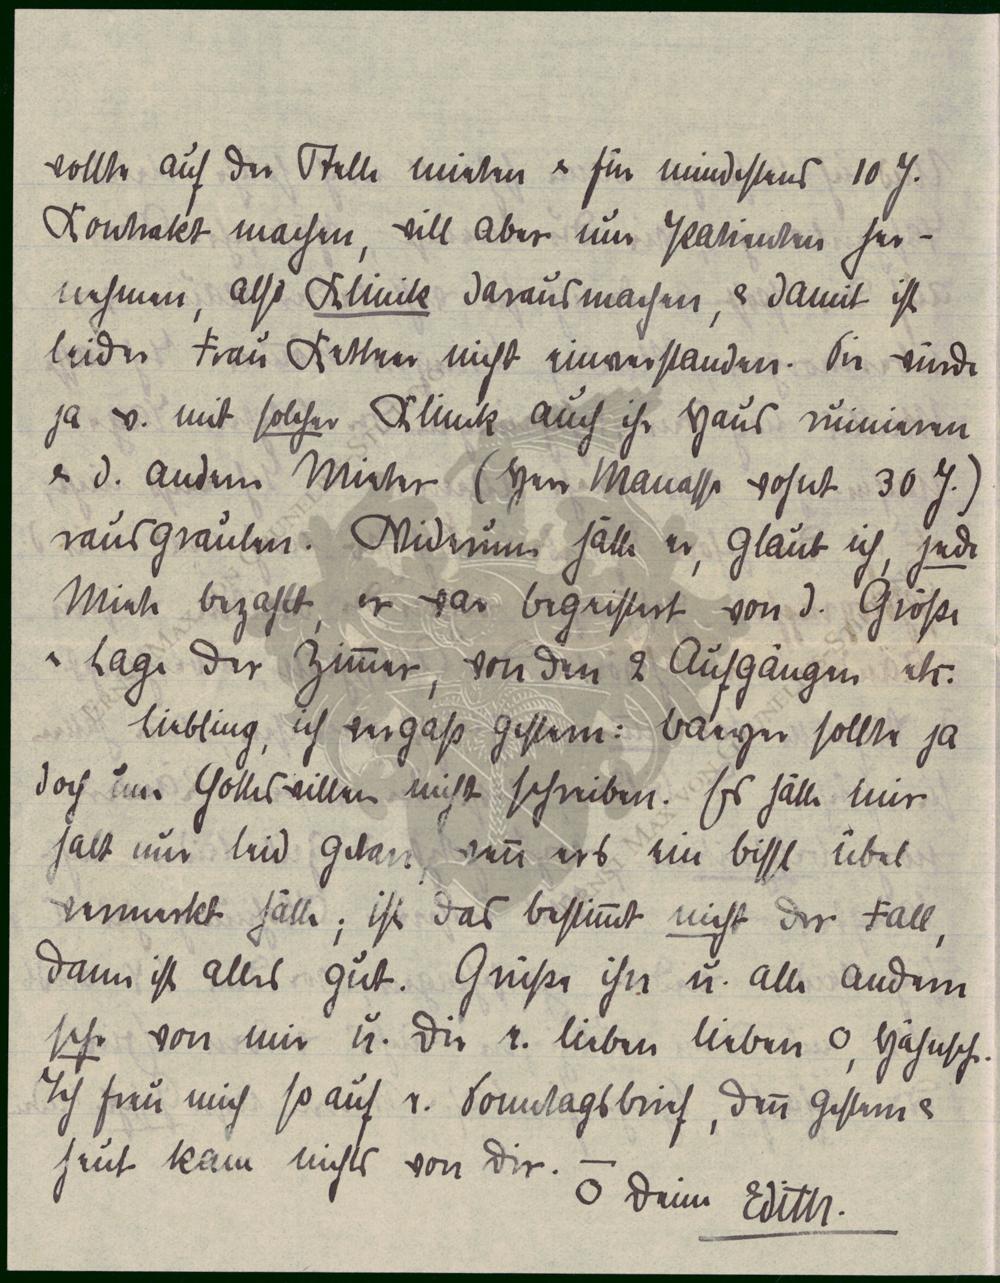 wollte auf der Stelle mieten & für mindestens 10 J.
Kontrakt machen, will aber nur Patienten her-
nehmen, also Klinik darausmachen, & damit ist
leider Frau Kettner nicht einverstanden. Sie würde
ja v. mit solcher Klinik auch ihr Haus ruinieren
& d. andern Mieter (Herr Manasse wohnt 30 J.)
rausgraulen. Widerum hätte er, glaubt ich, jede
Miete bezahlt, er war begeistert von d. Größe
& Lage der Zimmer, von den 2 Aufgängen etc.
Liebling, ich vergaß gestern: Baeyer sollte ja
doch um Gotteswillen nicht schreiben. Es hätte mir
halt nur leid getan, wenn ers ein bissl übel
vermerkt hätte; ist das bestimmt nicht der Fall,
dann ist alles gut. Grüße ihn u. alle andern
sehr von mir u. Dir e. lieben lieben O, Hähnsch.
Ich freu mich so auf e. Sonntagsbrief, denn gestern &
heut kam nichts von Dir. —
O Deine Edith.